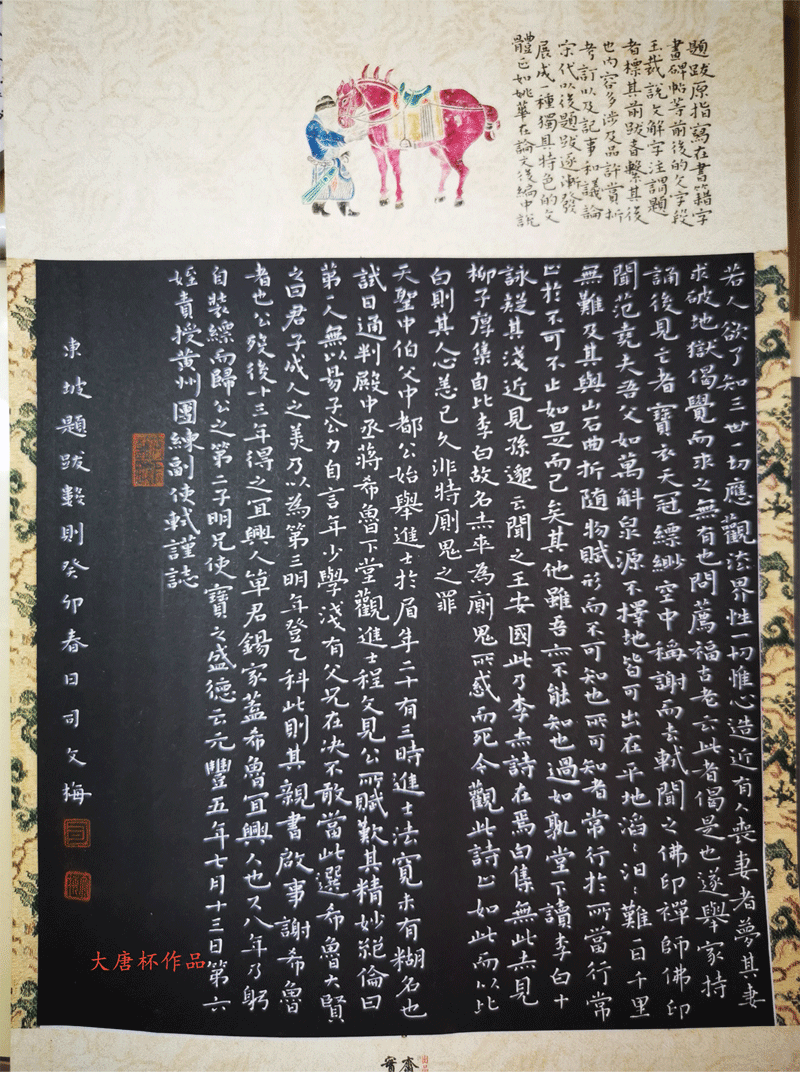 題跋原指寫在書籍字
畫碑帖等前後的文字段
玉裁說文解字注謂題
者標其前跋者繫其後
也内容多涉及品評賞析
考訂以及記事和議論
宋代以後題跋逐漸發
展成一種獨具特色的文
體正如姚華在論文後編中說
若人欲了知三世一切應觀法界性一切惟心造近有人喪妻者夢其妻
求破地獄偈覺而求之無有也問薦福古老云此者偈是也遂舉家持
誦後見亡者寶衣天冠縹緲空中稱謝而去軾聞之佛印禪師佛印
聞范堯夫吾父如萬斛泉源不擇地皆可出在平地滔:汩:難一日千里
無難及其與山石曲折随物賦形而不可知也所可知者常行於所當行常
止於不可不止如是而已矣其他雖吾亦不能知也過如孰堂下讀李白十
詠疑其淺近見孫邈云聞之王安國此乃李赤詩在焉白集無此赤見
柳子厚集自比李白故名赤卒為廁鬼所惑而死今觀此詩止如此而以比
白則其人心恙已久非特厠鬼之罪
天聖中伯父中都公始舉進士於眉年二十有三時進士法寬未有糊名也
試日通判殿中丞蔣希魯下堂觀進士程文見公所賦歎其精妙絕倫曰
第一人無以易子公力自言年少學淺有父兄在決不敢當此選希魯大賢
之曰君子成人之美乃以為第三明年登乙科此則其親書啟事謝希魯
者也公歿後十三年得之宜興人單君錫家蓋希魯宜興人也又八年乃躬
自裝縹而歸公之第二子明兄使寶之盛德云元豐五年七月十三日第六
姪責授黄州團練副使軾謹誌
東坡題跋數則癸卯春日司文梅
大唐杯作品